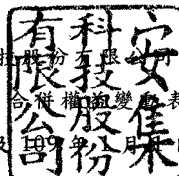 安集
科技股份
有限公司
技股份有限公司
合併權益變動表
109 年 1 月 1